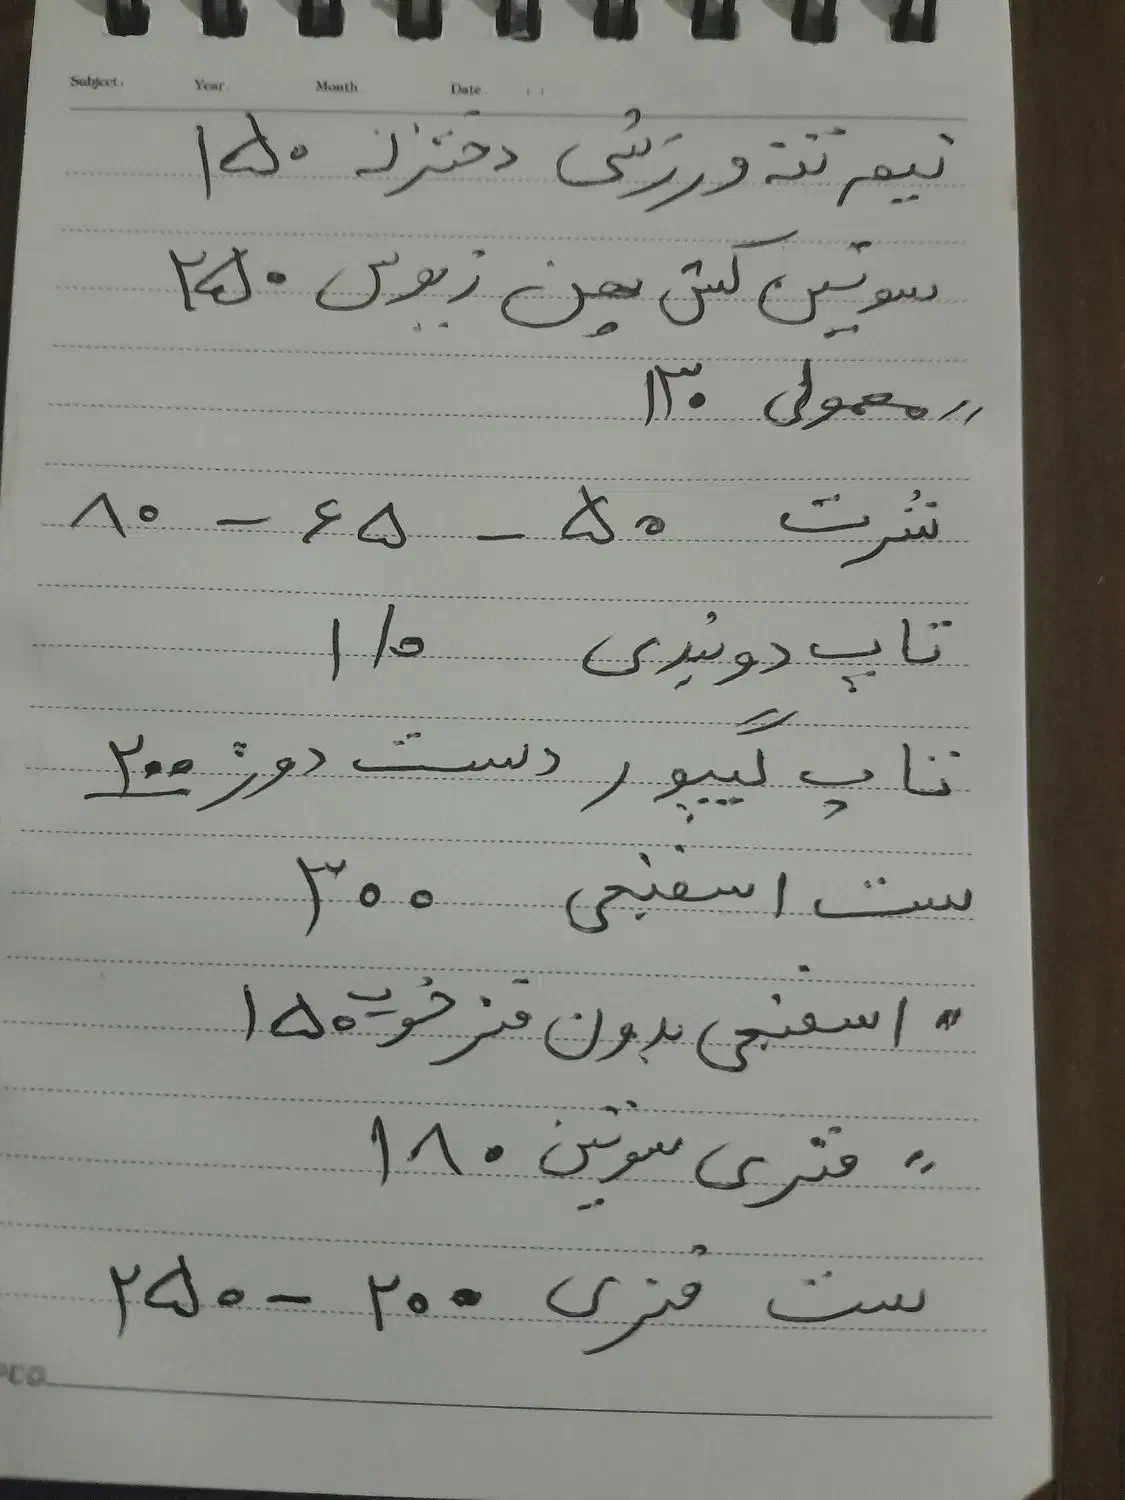 Subject. Year. Month Date.
نیم تنه ورزشی دخترانه ۱۵۰
سوتین کش پهن زیبوس ۲۵۰
〃 معمولی ۱۳۰
شرت ۵۰ - ۶۵ - ۸۰
تاپ دوبندی
تاپ گیپور دست دوز ۲۰۰
ست اسفنجی ۳۰۰
〃 اسفنجی بدون فنر خوب ۱۵۰
〃 فنری سوتین ۱۸۰
ست فنری ۲۰۰ - ۲۵۰